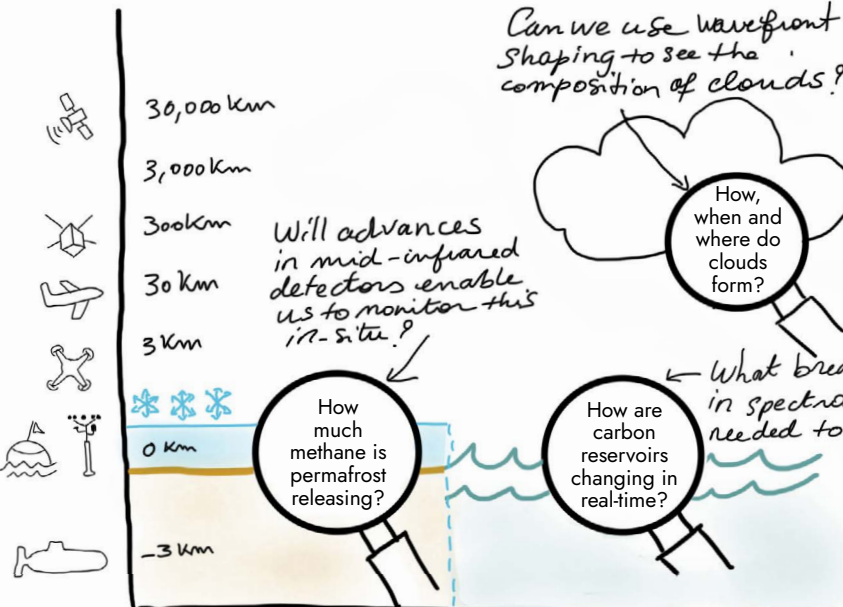 Can we use wavefront
shaping to see the
composition of clouds?
30,000 Km
3,000 Km
300 Km
30 Km
3 Km
0 Km
-3 Km
Will advances
in mid-infrared
detectors enable
us to monitor this
in-situ?
How,
when and
where do
clouds
form?
How
much
methane is
permafrost
releasing?
How are
carbon
reservoirs
changing in
real-time?
What
in
needed to